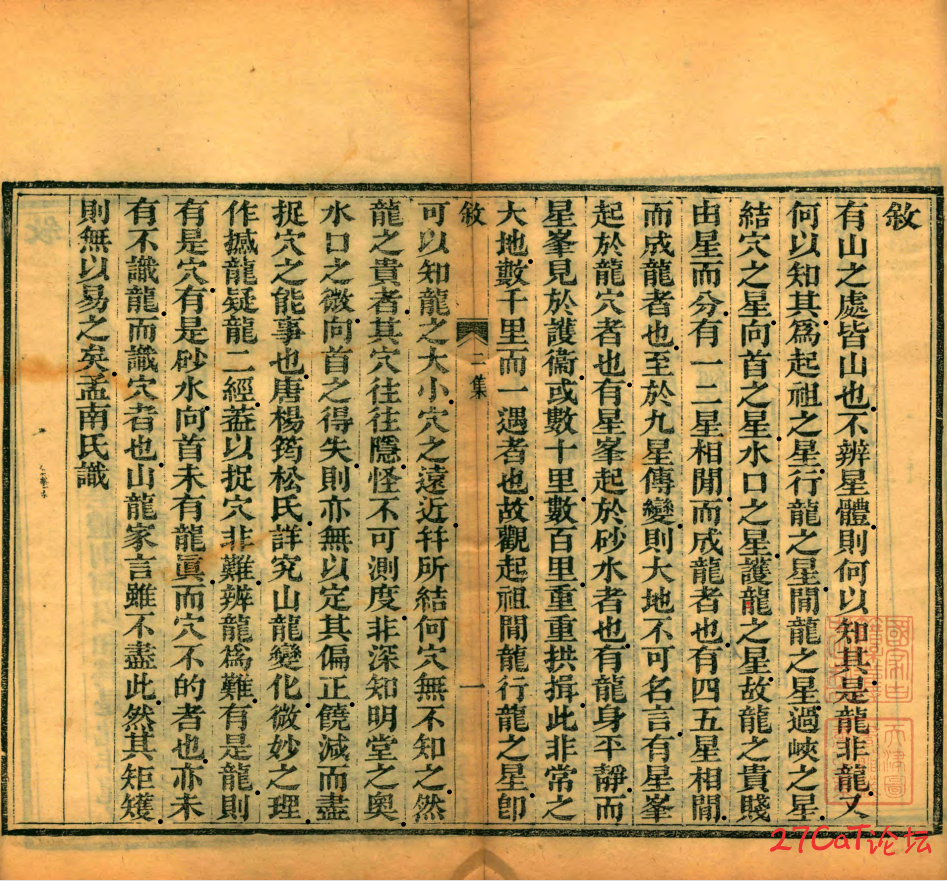 敘
有山之處皆山也不辨星體則何以知其是龍非龍又
何以知其爲起祖之星行龍之星間龍之星過峽之星
結穴之星向首之星水口之星護龍之星故龍之貴賤
由星而分有一二星相間而成龍者也有四五星相間
而成龍者也至於九星傳變則大地不可名言有星峯
起於龍穴者也有星峯起於砂水者也有龍身平靜而
星峯見於護衞或數十里數百里重重拱揖此非常之
大地數千里而一遇者也故觀起祖間龍行龍之星卽
敘 二集 一
可以知龍之大小穴之遠近幷所結何穴無不知之然
龍之貴者其穴往往隱怪不可測度非深知明堂之奧
水口之微向首之得失則亦無以定其偏正饒減而盡
捉穴之能事也唐楊筠松氏詳究山龍變化微妙之理
作撼龍疑龍二經蓋以捉穴非難辨龍爲難有是龍則
有是穴有是砂水向首未有龍眞而穴不的者也亦未
有不識龍而識穴者也山龍家言雖不盡此然其矩矱
則無以易之矣孟南氏識
27CaT论坛